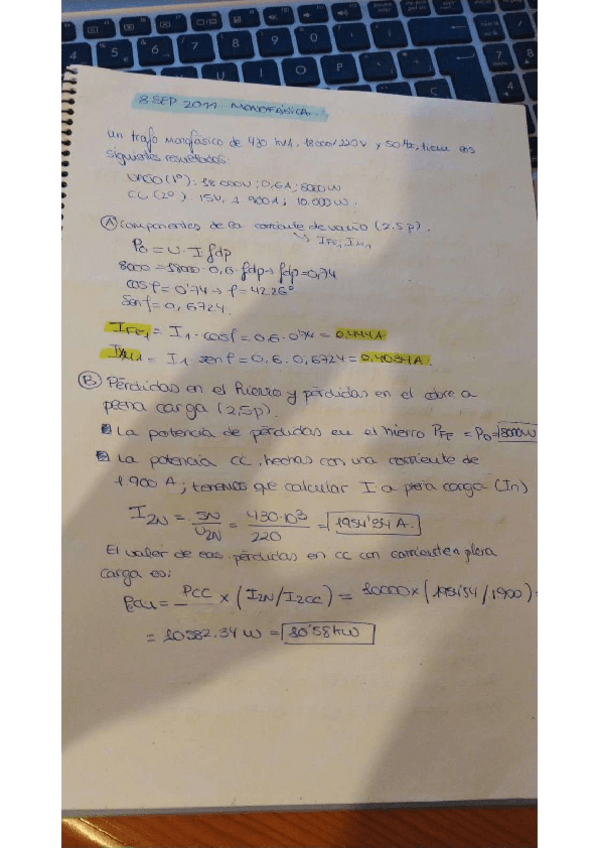 8 SEP 2011 MONOFÁSICA.
Un trafo monofásico de 430 kVA, 18000/220V y 50Hz, tiene los
siguientes resultados:
VACIO (1º): 18000V; 0,6A; 8000W
CC (2º): 15V, 1900A; 10.000W.
A Componentes de la corriente de vacío (2.5p).
↳ IFe1, Iμ1
P0 = U·I·fdp
8000 = 18000·0,6·fdp → fdp = 0,74
cosφ = 0'74 → φ = 42.26º
senφ = 0,6724.
IFe1 = I1·cosφ = 0.6·0'74 = 0.444A
Iμ1 = I1 senφ = 0.6·0,6724 = 0.4034A.
B Pérdidas en el hierro y pérdidas en el cobre a
plena carga (2,5p).
La potencia de pérdidas en el hierro PFe = P0 = 8000W
La potencia CC, hechas con una corriente de
1900 A; tenemos que calcular I a plena carga (In)
I2N = SN/U2N = 430·10³/220 = 1954'54 A.
El valor de las pérdidas en CC con corriente a plena
carga es:
Pcu = PCC × (I2N/I2CC) = 10000×(1954'54/1900)
= 10582.34 W = 10'58kW